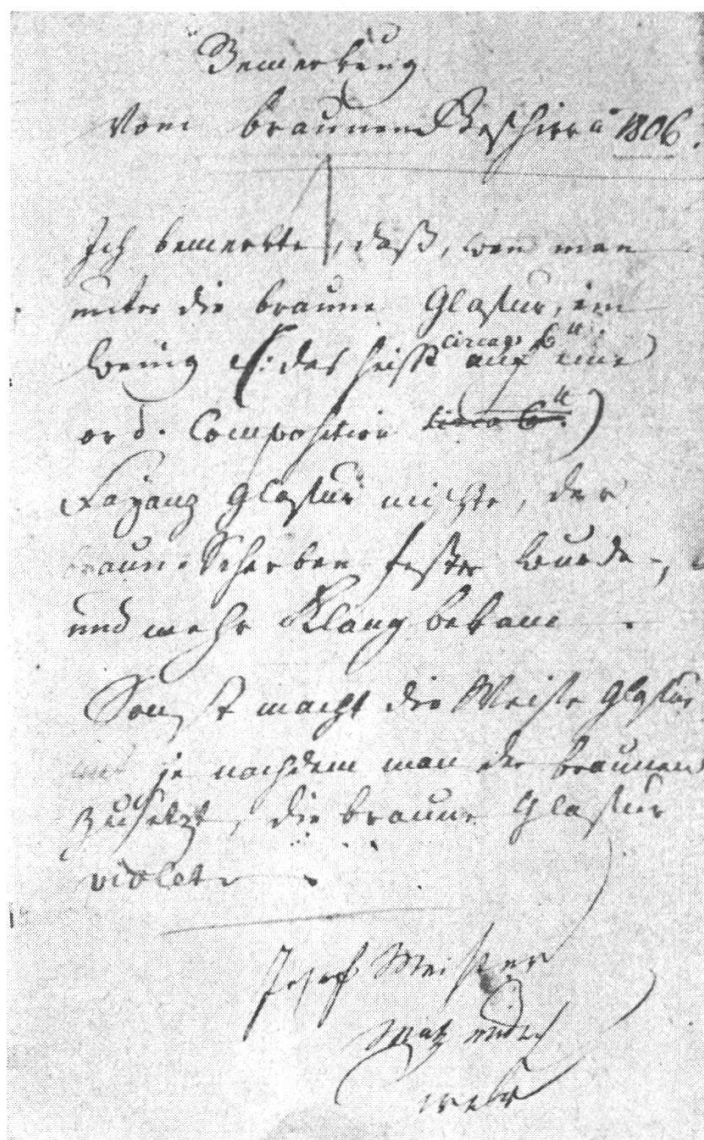 Bemerkung
vom braunen Geschirr ao 1806.
Ich bemerkte, daß, wen man
unter die braune Glasur, ein
wenig /: das heisst circa 6 ₶: auf eine
ord. Composition circa 6 ₶)
Fayanz Glasur mischte, der
braune Scherben fester wurde,
und mehr Klang bekam.
Sonst macht die Weisse Glasur
je nachdem man der braunen
zusetzt, die braune Glasur
violet.
Josef Meister
Matzendorf